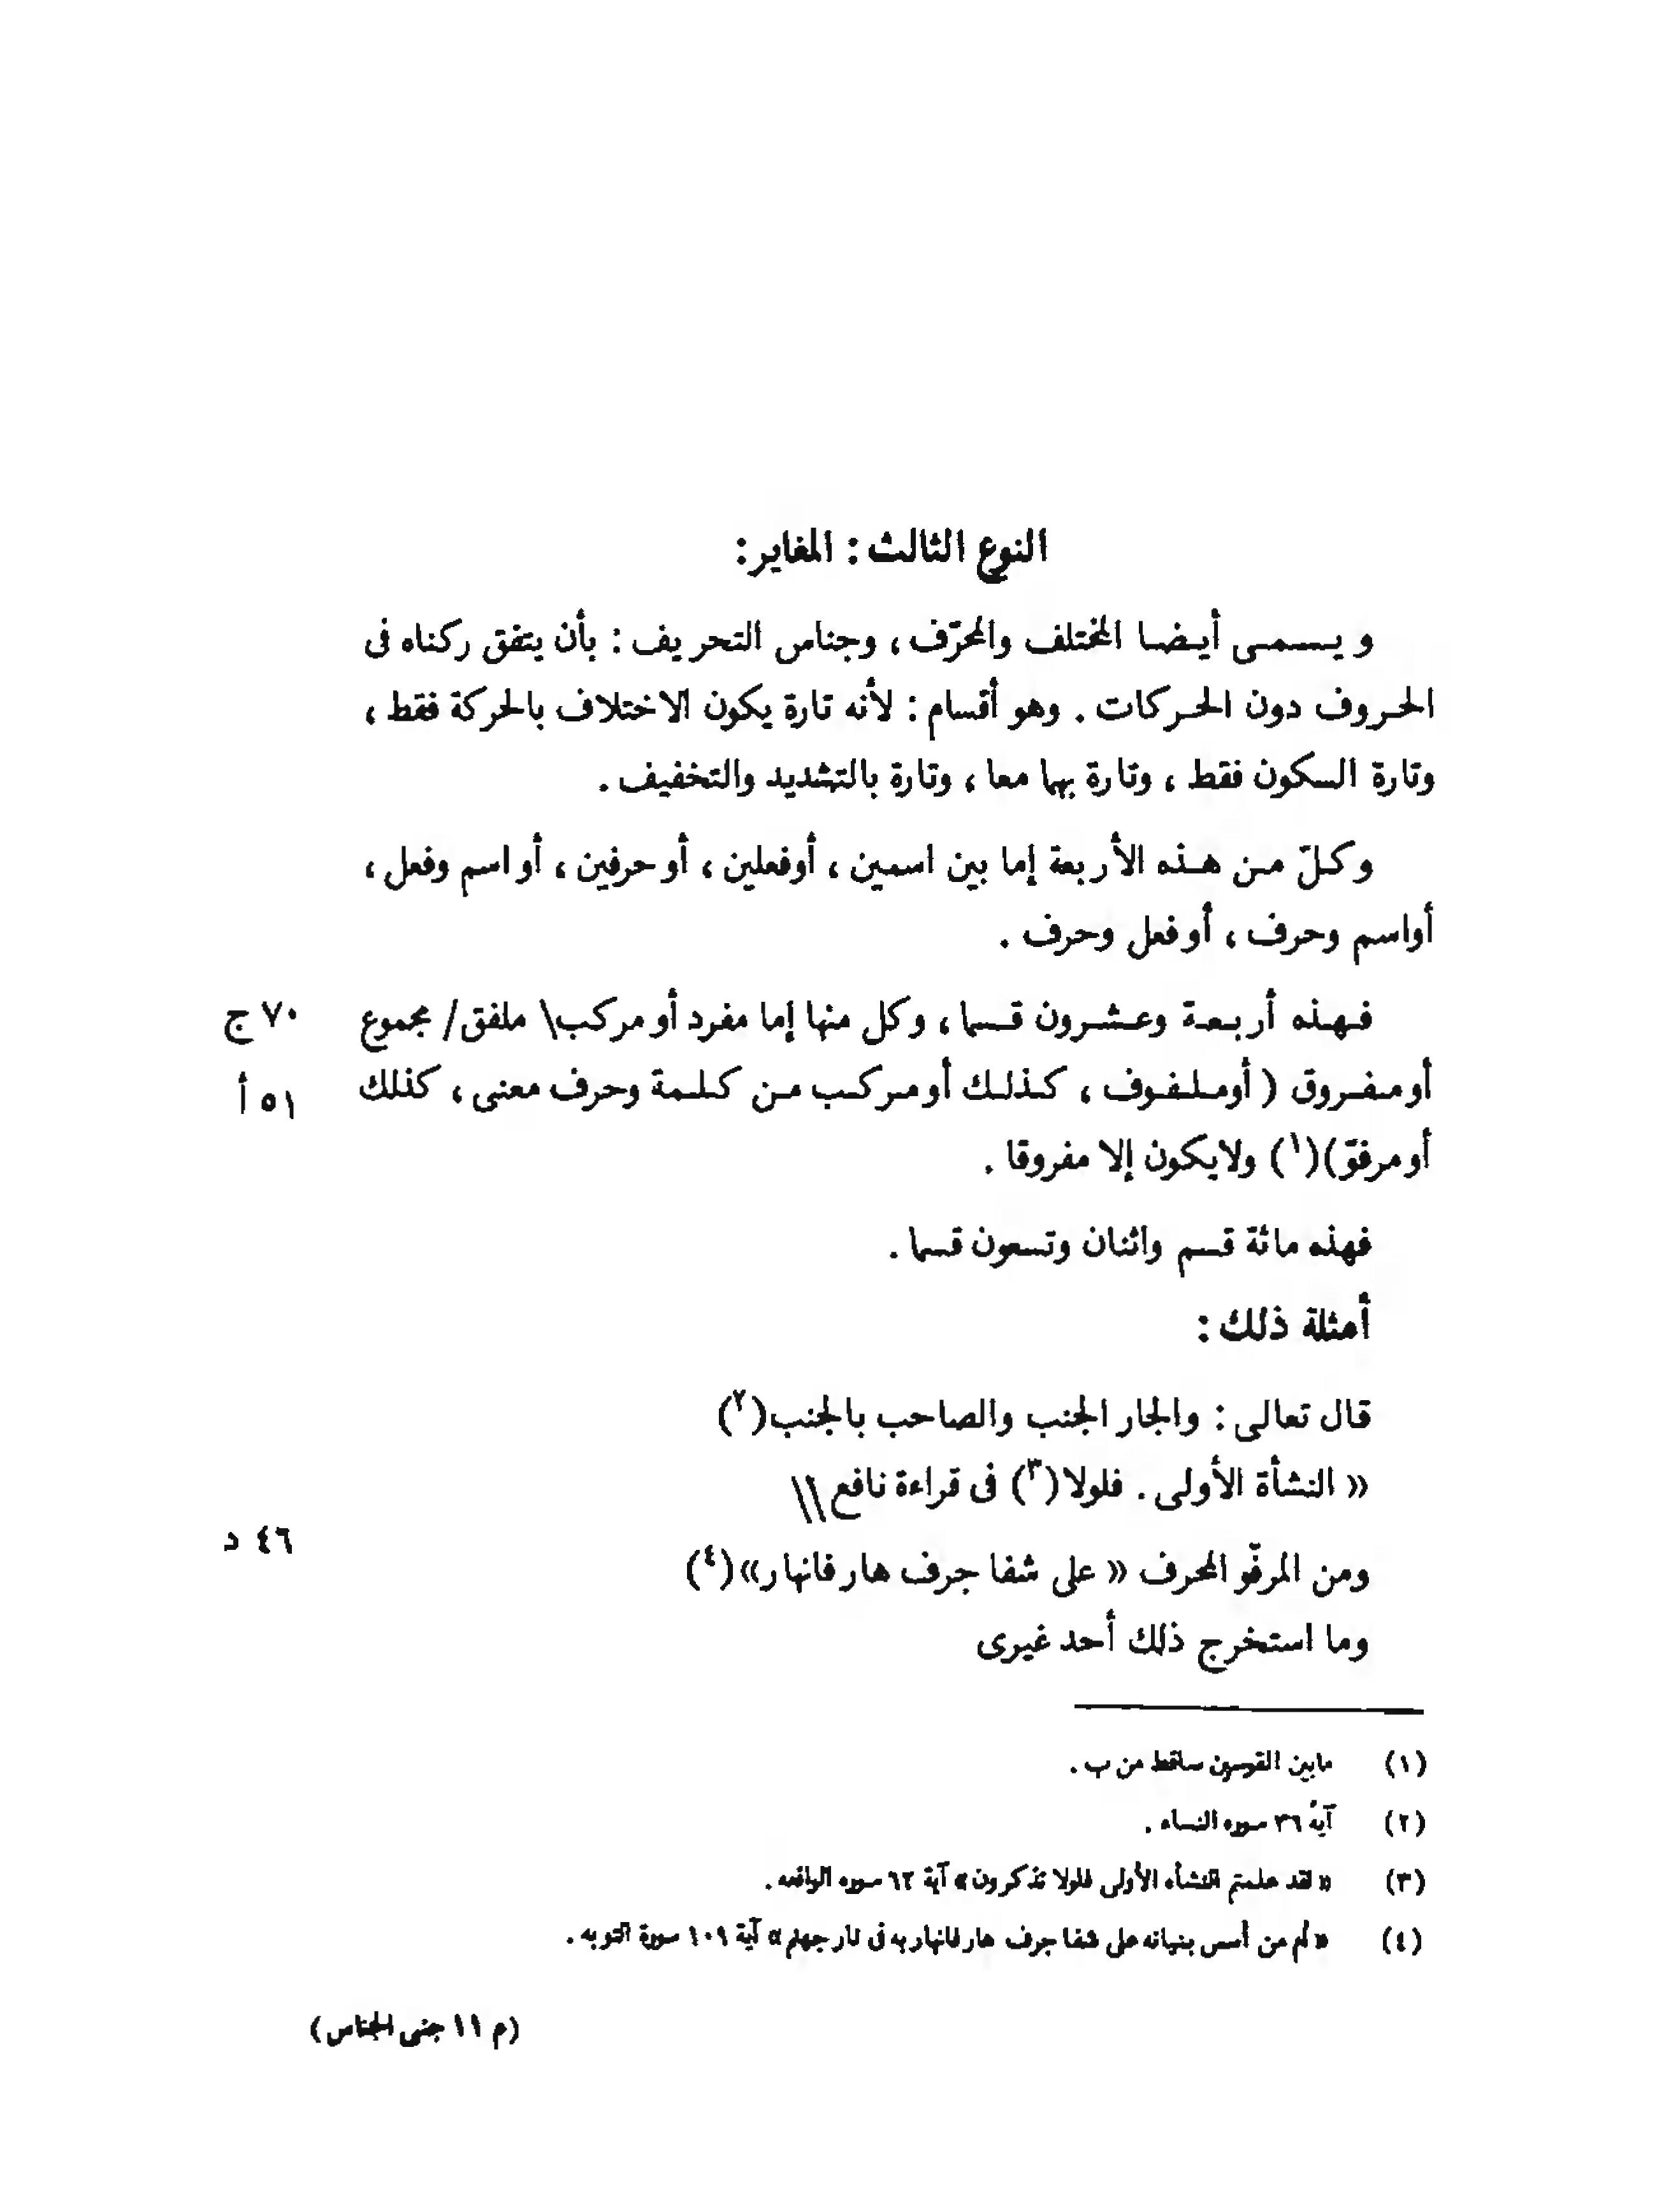 النوع الثالث : المغاير:
ويسمى أيضا المختلف والمحرّف ، وجناس التحريف : بأن يتفق ركناه فى
الحروف دون الحركات . وهو أقسام : لأنه تارة يكون الاختلاف بالحركة فقط ،
وتارة السكون فقط ، وتارة بهما معا ، وتارة بالتشديد والتخفيف .
وكلّ من هذه الأربعة إما بين اسمين ، أوفعلين ، أو حرفين ، أو اسم وفعل ،
أواسم وحرف ، أو فعل وحرف .
فهذه أربعة وعشرون قسما ، وكل منها إما مفرد أو مركب\ ملفق/ مجموع
٧٠ ج
أو مفروق ( أوملفوف ، كذلك أو مركب من كلمة وحرف معنى ، كذلك
٥١ أ
أو مرفق)(١) ولايكون إلا مفروقا .
فهذه مائة قسم واثنان وتسعون قسما .
أمثلة ذلك :
قال تعالى : والجار الجنب والصاحب بالجنب(٢)
« النشأة الأولى . فلولا(٣) فى قراءة نافع\\
٤٦ د
ومن المرفّو المحرف « على شفا جرف هار فانهار»(٤)
وما استخرج ذلك أحد غيرى
(١) مابين القوسين ساقط من ب .
(٢) آية ٣٦ سوره النساء .
(٣) « لقد علمتم النشأه الأولى فلولا تذكرون » آية ٦٢ سوره الواقعه .
(٤) « أم من أسس بنيانه على شفا جرف هار فانهار به فى نار جهنم » آية ١٠٩ سورة التوبه .
(م ١١ جنى الجناس)